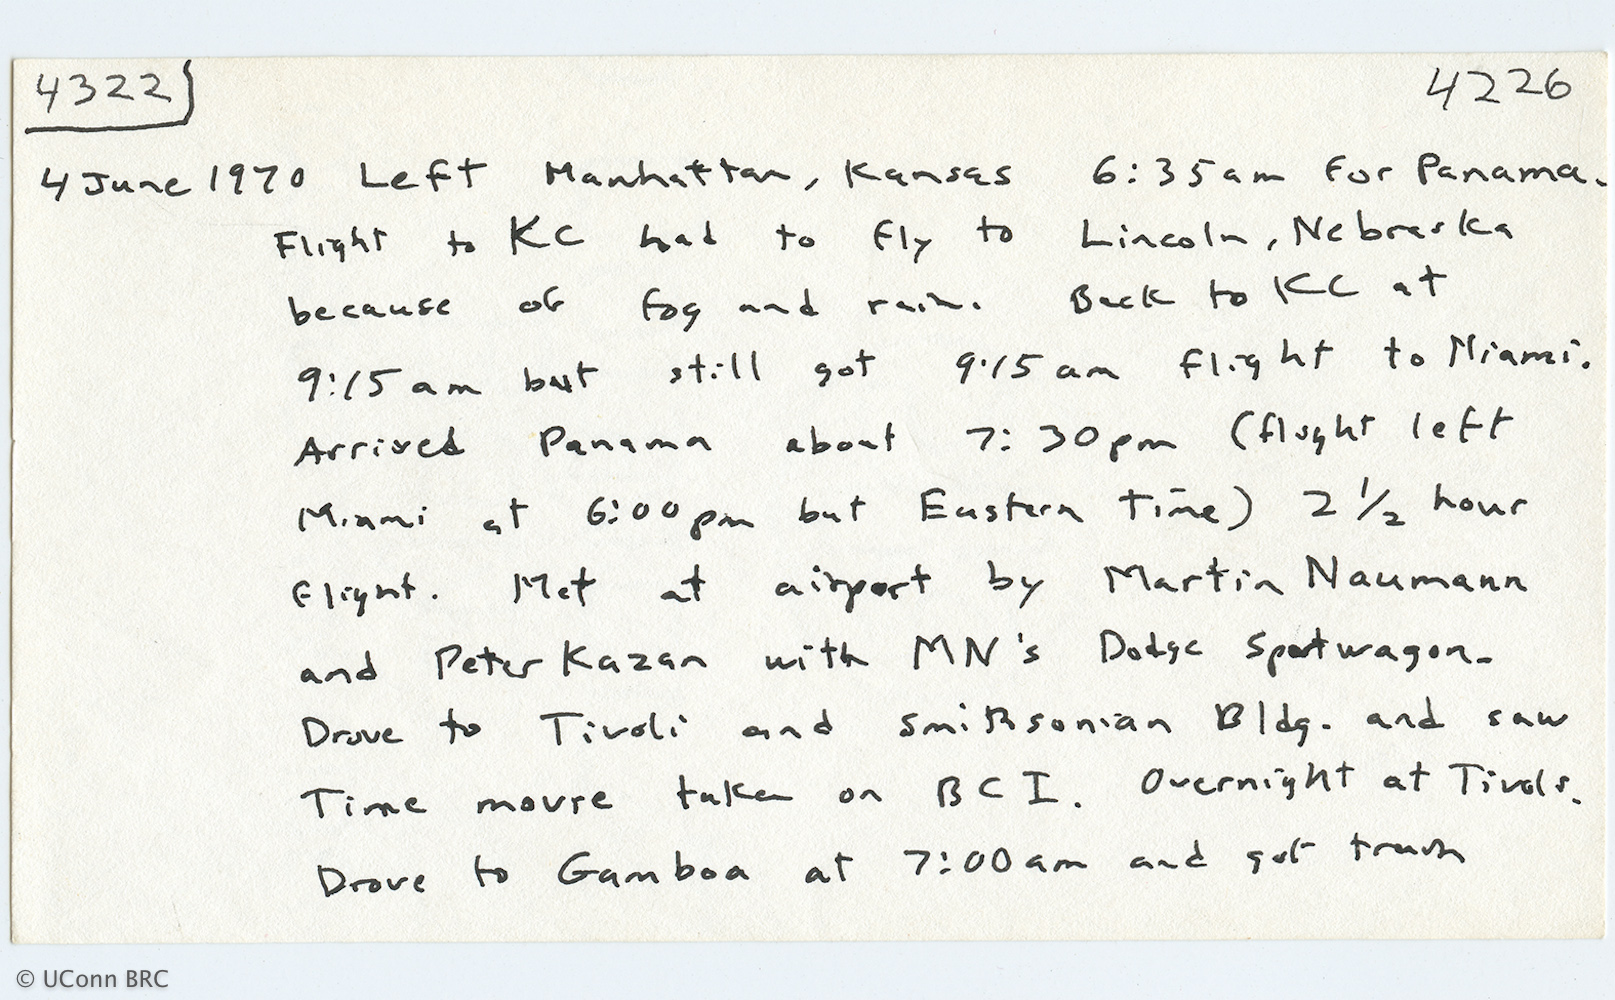 4322 4226
4 June 1970 Left Manhattan, Kansas 6:35am for Panama.
Flight to KC had to fly to Lincoln, Nebraska
because of fog and rain. Back to KC at
9:15am but still got 9:15am flight to Miami.
Arrived Panama about 7:30pm (flight left
Miami at 6:00pm but Eastern Time) 2 1/2 hour
flight. Met at airport by Martin Naumann
and Peter Kazan with MN's Dodge Sportwagon.
Drove to Tivoli and Smithsonian Bldg. and saw
Time movie taken on BCI. Overnight at Tivoli.
Drove to Gamboa at 7:00am and got
© UConn BRC